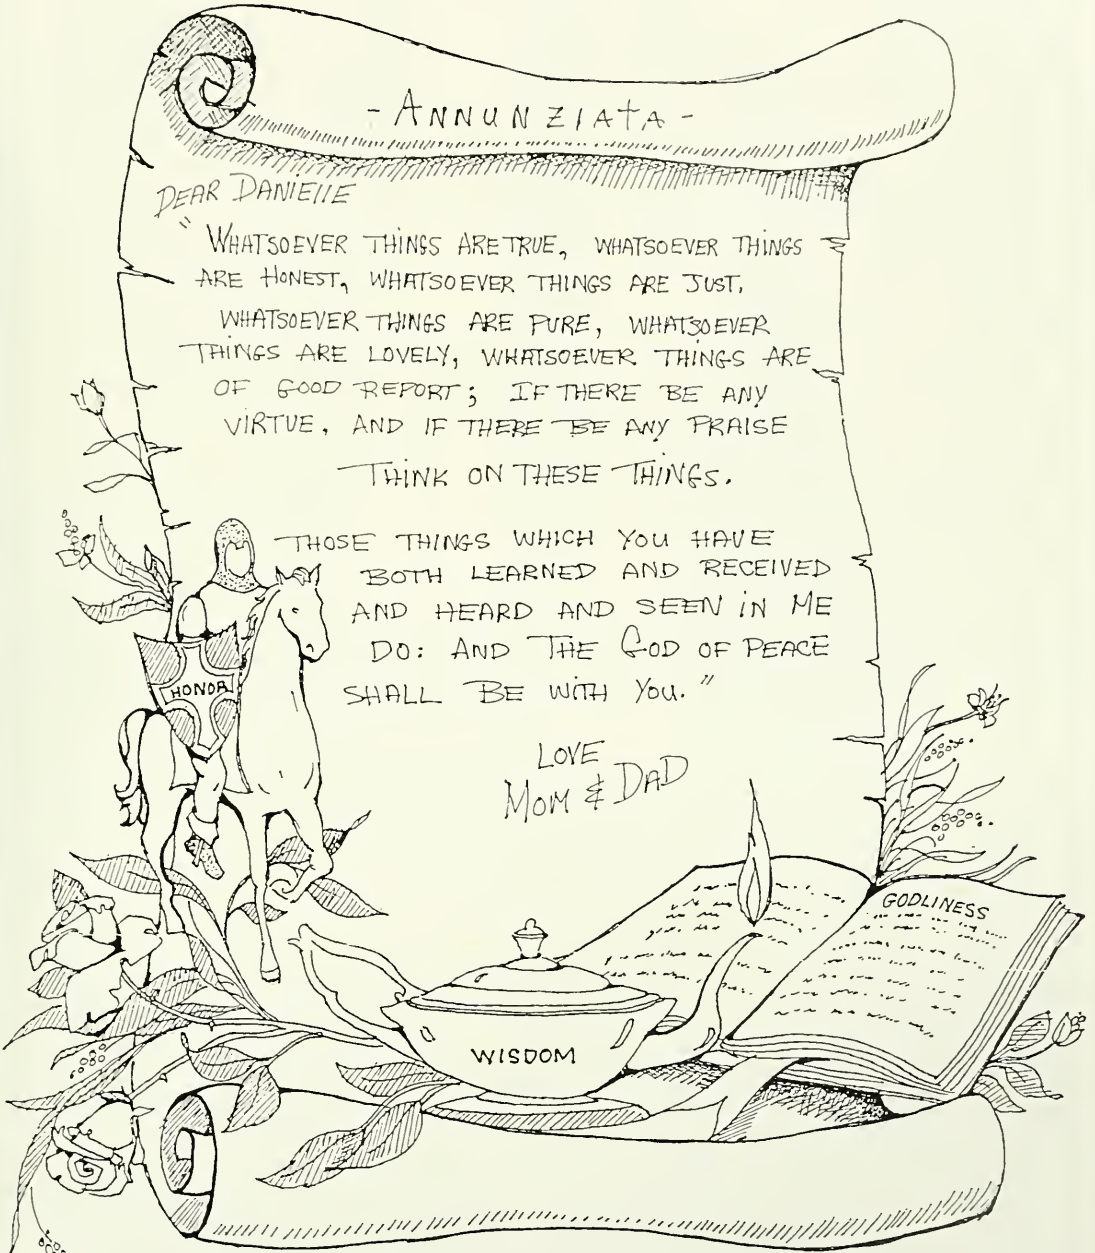 - ANNUNZIATA -
DEAR DANIELLE
"WHATSOEVER THINGS ARE TRUE, WHATSOEVER THINGS
ARE HONEST, WHATSOEVER THINGS ARE JUST,
WHATSOEVER THINGS ARE PURE, WHATSOEVER
THINGS ARE LOVELY, WHATSOEVER THINGS ARE
OF GOOD REPORT; IF THERE BE ANY
VIRTUE, AND IF THERE BE ANY PRAISE
THINK ON THESE THINGS.
THOSE THINGS WHICH YOU HAVE
BOTH LEARNED AND RECEIVED
AND HEARD AND SEEN IN ME
DO: AND THE GOD OF PEACE
SHALL BE WITH YOU."
LOVE
MOM & DAD
HONOR
GODLINESS
WISDOM